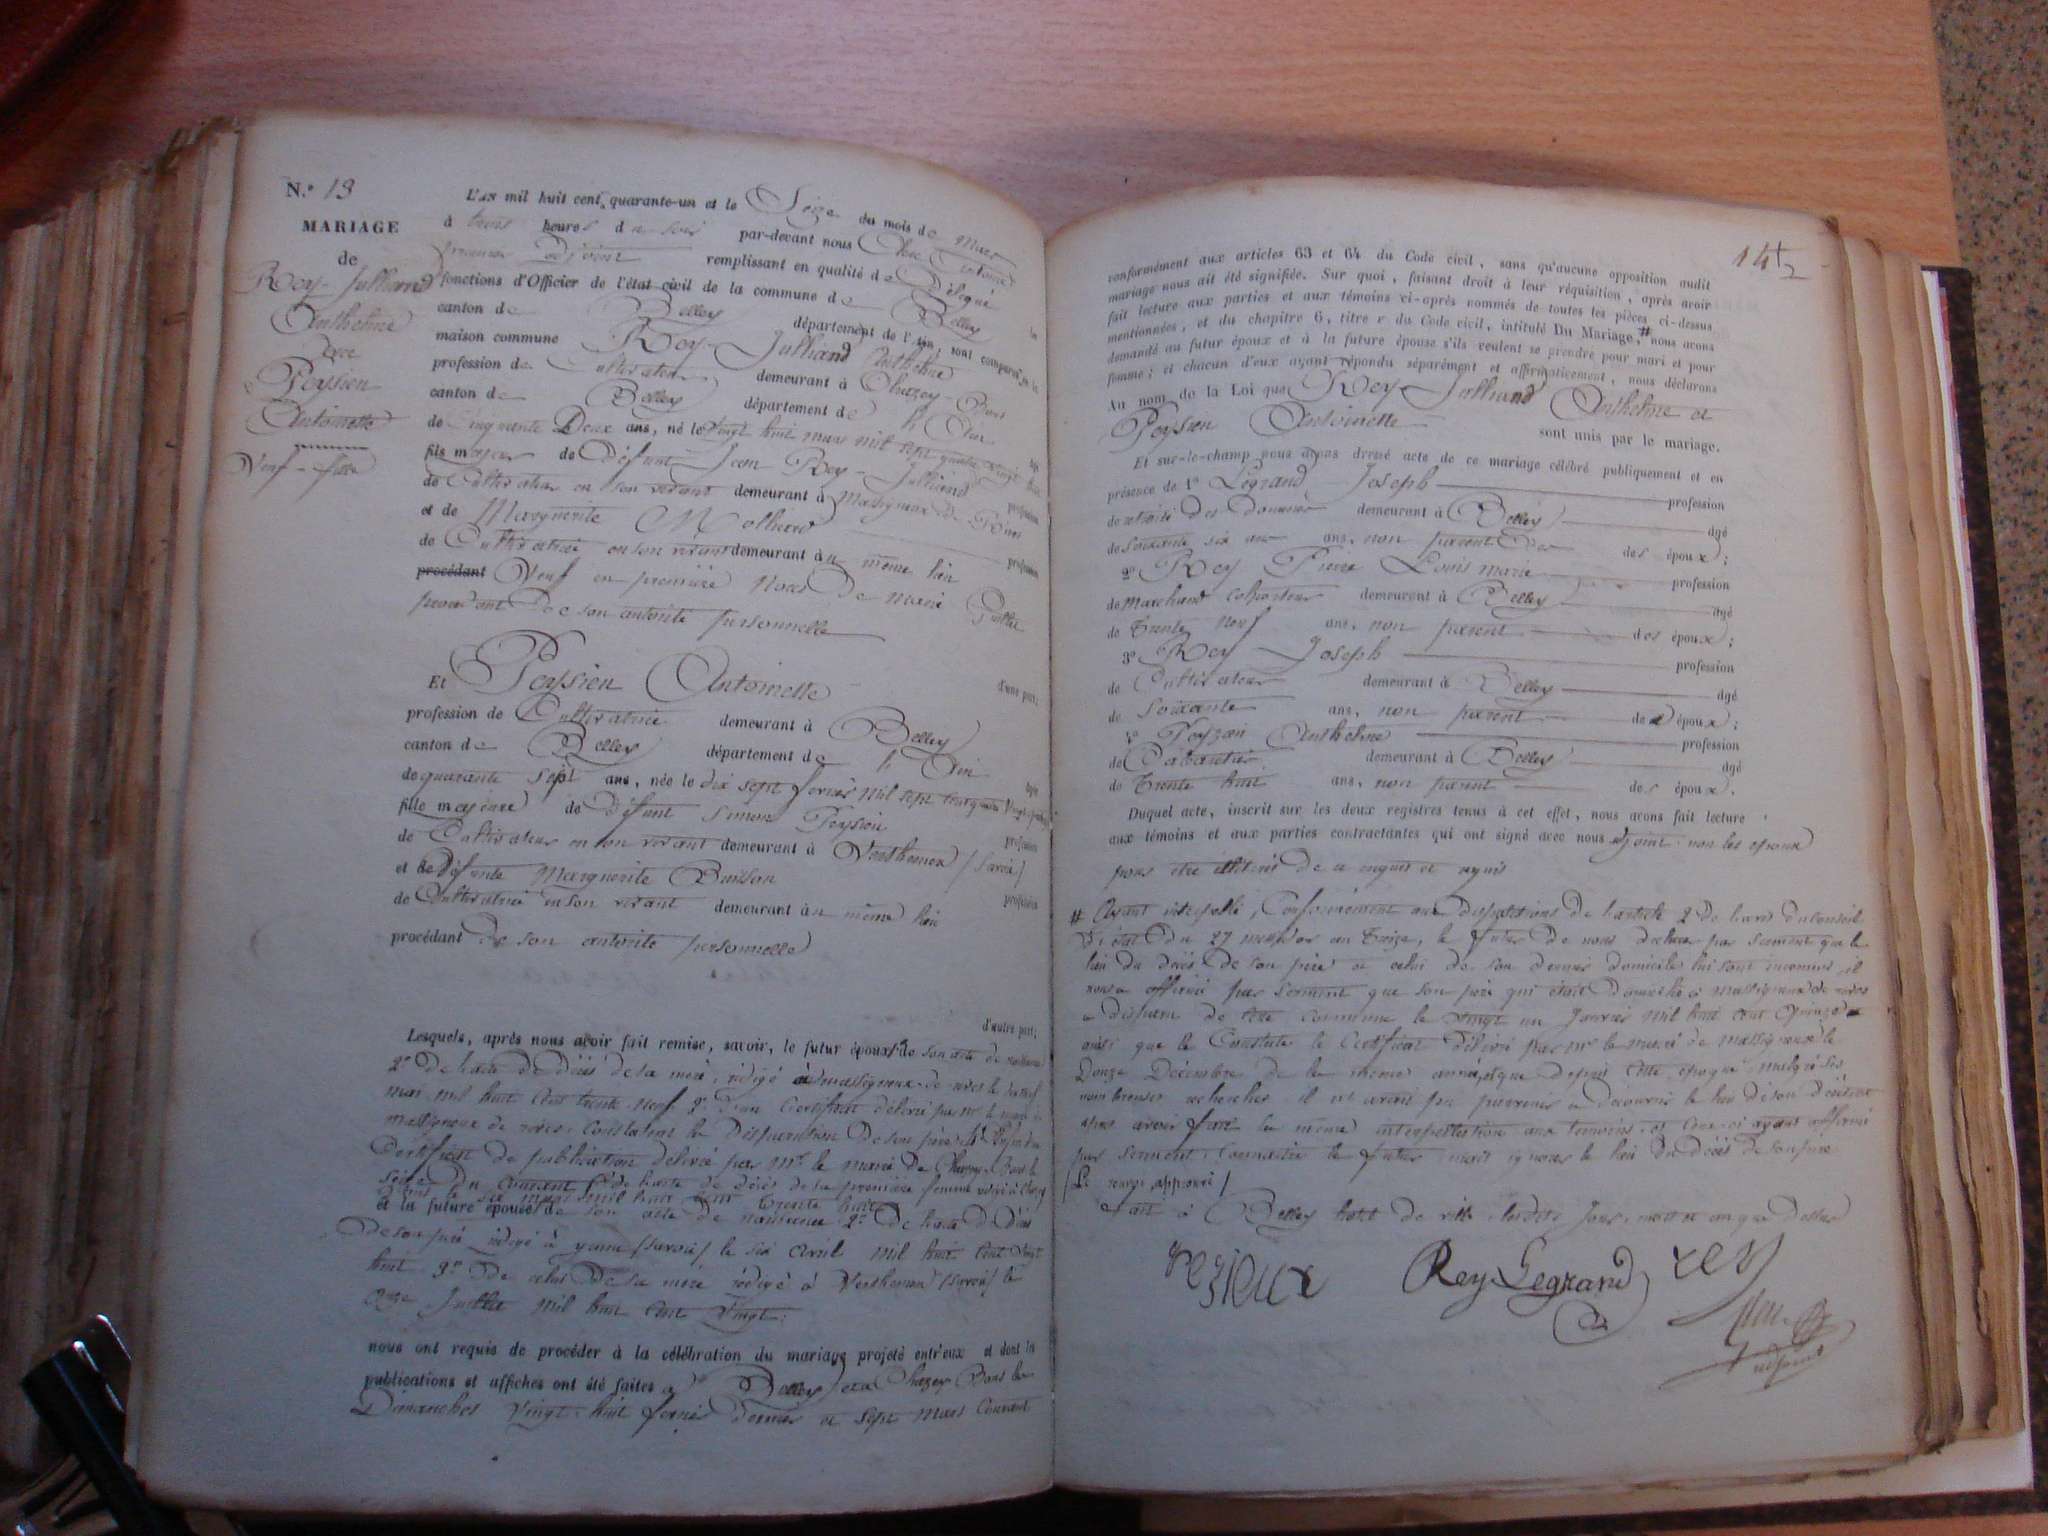 N.º 13
MARIAGE
de
Rey-Julliand
Anthelme
avec
Peysien
Antoinette
Veuf - fille
L'AN mil huit cent quarante-un et le Seize du mois de Mars
à trois heures du soir par-devant nous
premier Adjoint remplissant en qualité de Délégué les
fonctions d'Officier de l'état civil de la commune de Belley
canton de Belley département de l'Ain, sont comparus en la
maison commune Rey-Julliand Anthelme
profession de Cultivateur demeurant à Chazey-Bons
canton de Belley département de l'Ain
de Cinquante Deux ans, né le vingt huit mars mil sept quatre vingt
fils majeur de Défunt Jean Rey-Julliand profession
de Cultivateur en son vivant demeurant à Massigneux de Rives
et de Marguerite Molliard profession
de Cultivatrice en son vivant demeurant au même lieu
procédant Veuf en première Noces de Marie
procédant de son autorité personnelle
d'une part;
Et Peysien Antoinette
profession de Cultivatrice demeurant à Belley
canton de Belley département de l'Ain
de quarante sept ans, née le dix sept février mil sept cent quatre vingt
fille majeure de Défunt Simon Peysien profession
de Cultivateur en son vivant demeurant à Verthemex (Savoie)
et de Défunte Marguerite Buisson profession
de Cultivatrice en son vivant demeurant au même lieu
procédant de son autorité personnelle
d'autre part;
Lesquels, après nous avoir fait remise, savoir, le futur époux 1º de son acte de naissance
2º De l'acte de Décès de sa mère, rédigé à Massigneux de rives le
mai mil huit cent trente neuf 3º D'un Certificat délivré par Mr le maire de
Massigneux de rives, Constatant la Disparution de son père
Certificat de publication délivré par Mr. le maire de Chazey-Bons le
Seize du Courant de l'acte de décès de sa première femme rédigé à Chazey
Bons le six mars mil huit cent trente huit
et la future épouse 1º de son acte de naissance 2º De l'acte de Décès
de son père rédigé à Yenne (Savoie) le six avril mil huit cent vingt
huit 3º De celui de sa mère rédigé à Verthemex (Savoie) le
onze Juillet mil huit cent vingt.
nous ont requis de procéder à la célébration du mariage projeté entr'eux et dont les
publications et affiches ont été faites à Belley et à Chazey Bons les
Dimanches vingt-huit février dernier et sept mars Courant
conformément aux articles 63 et 64 du Code civil, sans qu'aucune opposition audit
mariage nous ait été signifiée. Sur quoi, faisant droit à leur réquisition, après avoir
fait lecture aux parties et aux témoins ci-après nommés de toutes les pièces ci-dessus
mentionnées, et du chapitre 6, titre v du Code civil, intitulé Du Mariage, # nous avons
demandé au futur époux et à la future épouse s'ils veulent se prendre pour mari et pour
femme; et chacun d'eux ayant répondu séparément et affirmativement, nous déclarons
Au nom de la Loi que Rey-Julliand Anthelme et
Peysien Antoinette sont unis par le mariage.
Et sur-le-champ nous avons dressé acte de ce mariage célébré publiquement et en
présence de 1º Legrand Joseph profession
de retraité des Douanes demeurant à Belley âgé
de soixante six ans ans, non parent des époux;
2º Rey Pierre Louis marie profession
de Marchand colporteur demeurant à Belley âgé
de Trente Neuf ans, non parent des époux;
3º Rey Joseph profession
de Cultivateur demeurant à Belley âgé
de soixante ans, non parent des époux;
4º Anthelme profession
de Cabaretier demeurant à Belley âgé
de Trente huit ans, non parent des époux.
Duquel acte, inscrit sur les deux registres tenus à cet effet, nous avons fait lecture
aux témoins et aux parties contractantes qui ont signé avec nous adjoint non les époux
pour être illitérés de ce enquis et requis
# Ayant interpellé, Conformément aux dispositions de l'article 2 de l'avis du Conseil
D'état du 27 messidor an treize, le futur de nous déclarer par serment que le
lieu du décès de son père et celui de son dernier domicile lui sont inconnus, il
nous a affirmé par serment que son père qui était Domicilié à Massigneux de rives
a disparu de cette commune le vingt un Janvier mil huit cent quinze
ainsi que le Constate le Certificat délivré par Mr le maire de Massigneux le
Douze Décembre de la même année, et que depuis cette époque malgré ses
nombreuses recherches il n'est parvenir à découvrir le lieu de son décès et
après avoir fait la même interpellation aux témoins, et ceux-ci ayant affirmé
par serment, Connaître le futur mais ignorer le lieu du décès de son père
(Le renvoi approuvé)
Fait à Belley hôtel de ville, lesdits Jour, mois et an que dessus
Rey Legrand rey
adjoint